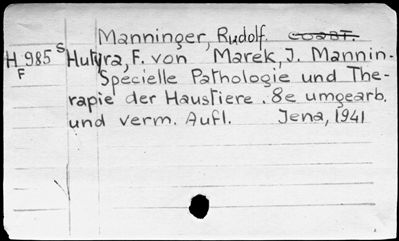 Manninger, Rudolf. соавт.
H 985 S Hutyra, F. von Marek, J. Mannin-
F Specielle Pathologie und The-
rapie der Haustiere. 8e umgearb.
und verm. Aufl. Jena, 1941